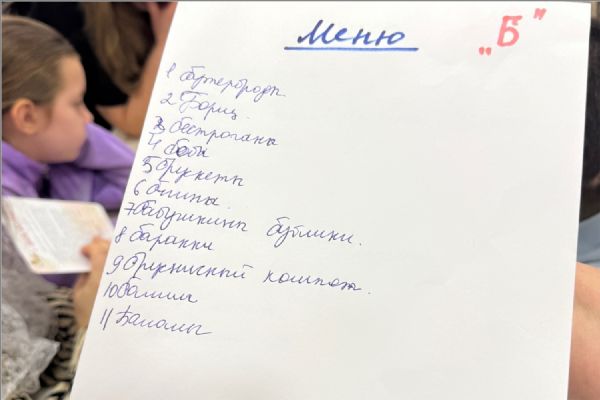 Меню
„Б"
1 бутерброды.
2 Борщ.
3 бестроганы
4 бобы
5 брикеты
6 блины.
7 бабушкины бублики.
8 баранки
9 брусничный компот.
11 Бананы